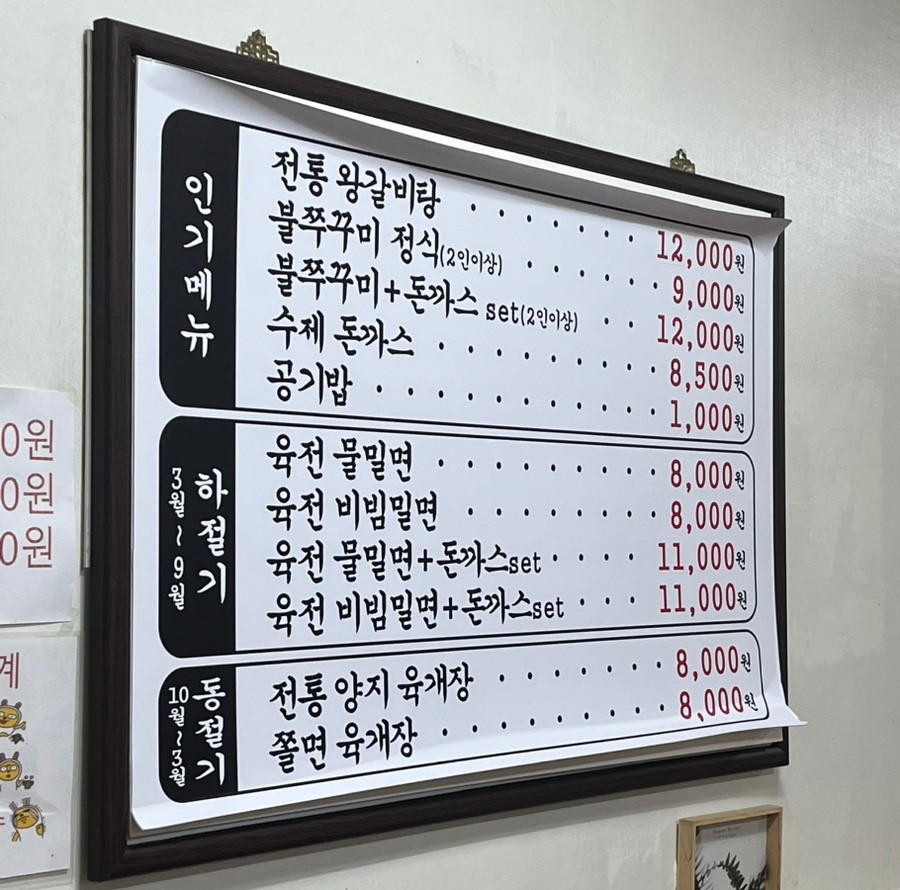 인기메뉴
전통 왕갈비탕 . . . . . . . 12,000원
불쭈꾸미 정식(2인이상) . . . . . 9,000원
불쭈꾸미+돈까스 set(2인이상) . . 12,000원
수제 돈까스 . . . . . . . . . 8,500원
공기밥 . . . . . . . . . . . 1,000원
하절기
3월~9월
육전 물밀면 . . . . . . . . . 8,000원
육전 비빔밀면 . . . . . . . . 8,000원
육전 물밀면+돈까스set . . . . 11,000원
육전 비빔밀면+돈까스set . . . 11,000원
동절기
10월~3월
전통 양지 육개장 . . . . . . . 8,000원
쫄면 육개장 . . . . . . . . . 8,000원
0원
0원
0원
계